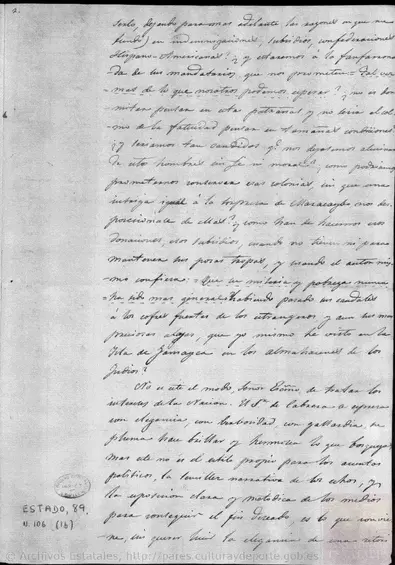 2.
dejando para mas adelante las razones en que me
fundo) en indemnizaciones, subsidios, confederaciones
Hispano-Americanas? ¿y estaremos á la fanfarrona
da de sus mandatarios, que no prometen
mas de lo que nosotros podemos esperar? ¿no es
pensar en esta patraña y no seria el col
mo de la fatuidad pensar en tamañas condiciones
¿y seriamos tan candidos q.e nos dejasemos alucinar
de esos hombres sin fe ni moral? ¿como podrian
prometernos conservar esas colonias, sin que una
intriga igual á la de Maracaybo nos des
posesionase de ellas? ¿como han de hacernos esas
donaciones, esos subsidios, cuando no tienen ni para
mantener sus pocas tropas, y cuando el autor mis
mo confiesa: Que su miseria y pobreza nunca
ha sido mas general: habiendo pasado sus caudales
á los cofres fuertes de los estrangeros y aun sus mas
preciosas alajas, que yo mismo he visto en la
Isla de Jamayca en los almahacenes de los
Judios?
No es este el modo, Señor Exmo, de tratar los
intereses de la Nacion. El S.or de Cabrera se espresa
con elegancia, con verbosidad, con gallardia, su
pluma hace brillar y hermosea lo que bosqueja
mas ele no es el estilo propio para los asuntos
politicos, la sencilla narrativa de los echos, y
la esposicion clara y metodica de los medios
para conseguir el fin deseado, es lo que convie
ne, sin querer lucir la elegancia de una retori
ESTADO, 89,
N. 106 (16)
© Archivos Estatales, http://pares.culturaydeporte.gob.es